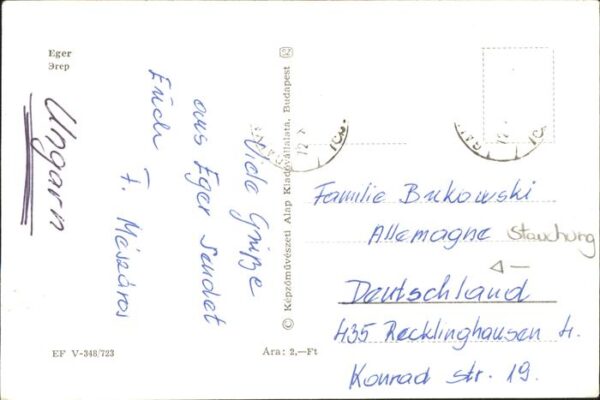 Eger
Эгер
Ungarn
Viele Grüße
aus Eger sendet
Euch
F. Mészáros
© Képzőművészeti Alap Kiadóvállalata, Budapest
EF V-348/723
Ára: 2,—Ft
Familie Bukowski
Allemagne Stauchung
Deutschland
435 Recklinghausen 4.
Konrad str. 19.